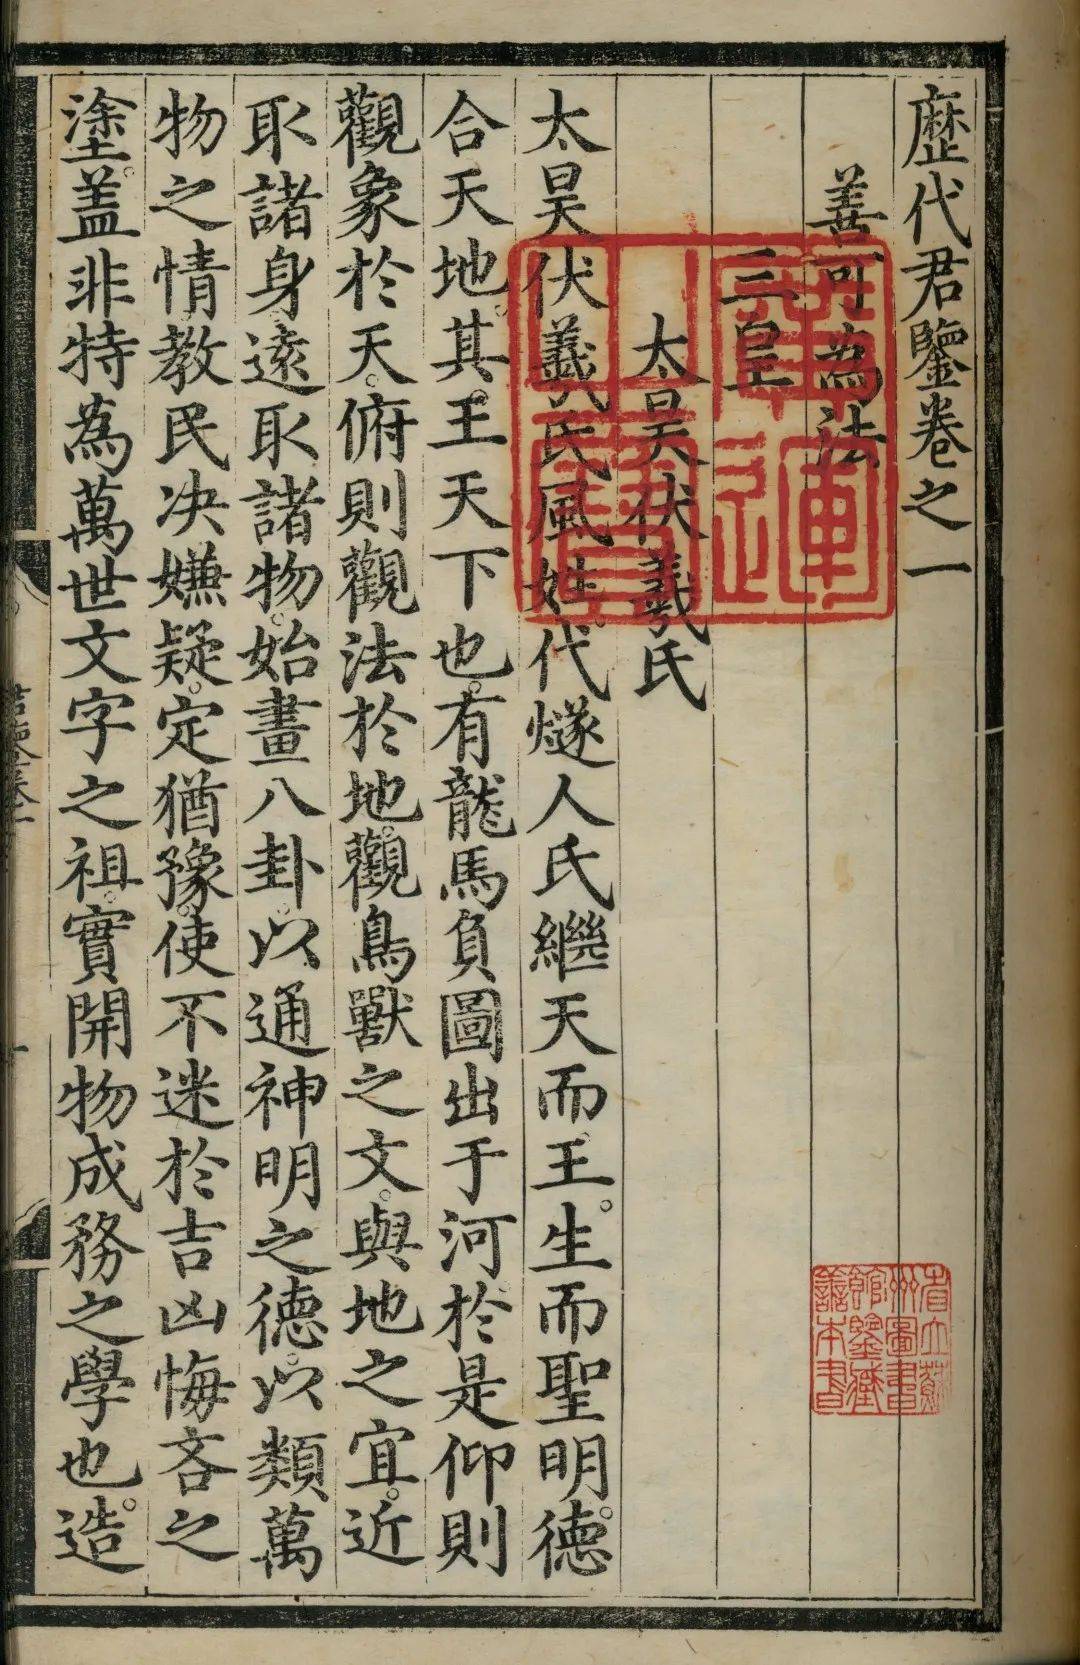 歷代君鑒卷之一
善可為法
三皇
太昊伏羲氏
太昊伏羲氏風姓。代燧人氏繼天而王。生而聖明。德
合天地。其王天下也。有龍馬負圖出于河。於是仰則
觀象於天。俯則觀法於地。觀鳥獸之文。與地之宜。近
取諸身。遠取諸物。始畫八卦。以通神明之德。以類萬
物之情。教民決嫌疑。定猶豫。使不迷於吉凶悔吝之
塗。盖非特為萬世文字之祖。實開物成務之學也。造
省立蘇
州圖書
館鑒藏
善本書